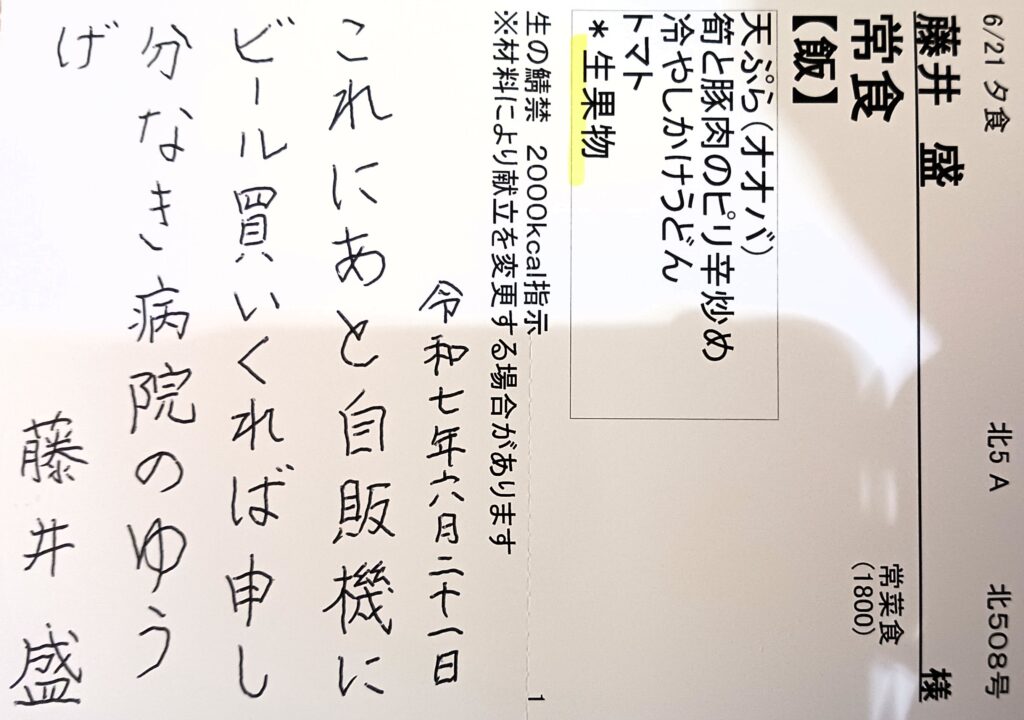 6/21 夕食 北5 A 北508号
藤井 盛 様
常食 常菜食
(1800)
【飯】
天ぷら(オオバ)
筍と豚肉のピリ辛炒め
冷やしかけうどん
トマト
*生果物
生の鯖禁 2000kcal指示
1
※材料により献立を変更する場合があります
令和七年六月二十一日
これにあと自販機に
ビール買いくれば申し
分なき病院のゆう
げ
藤井 盛